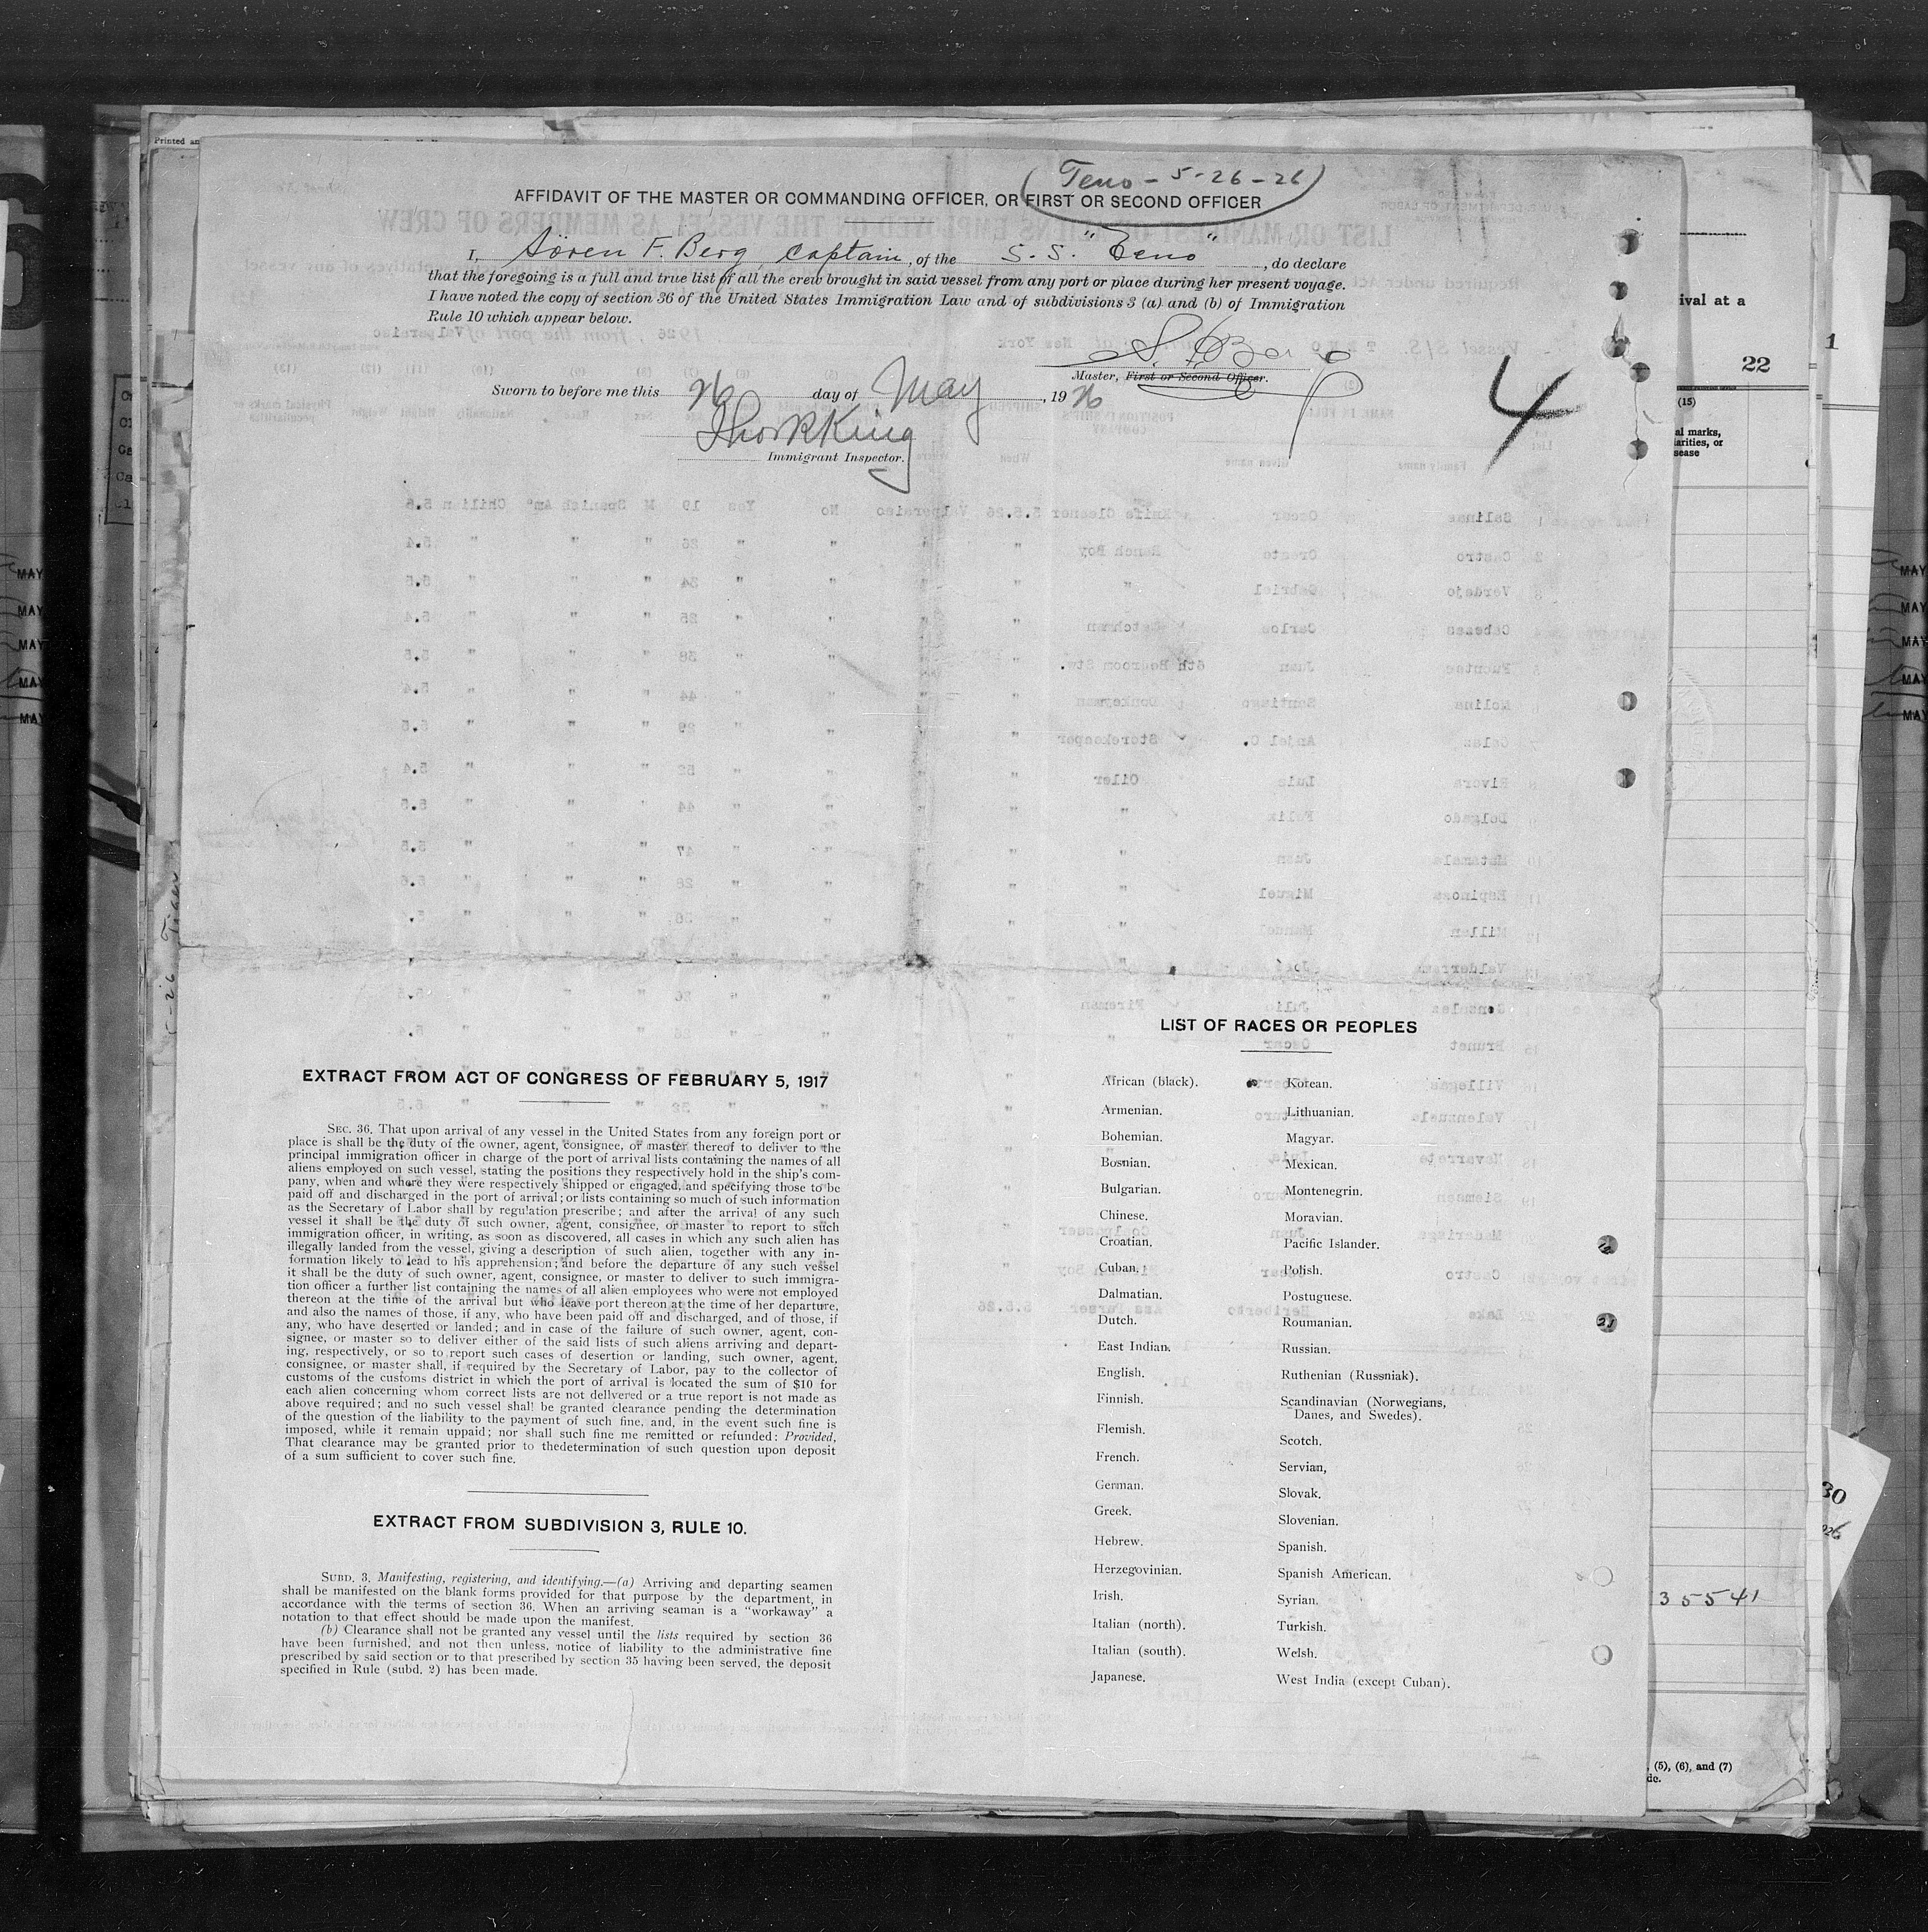 Printed an
Teno - 5-26-26
AFFIDAVIT OF THE MASTER OR COMMANDING OFFICER, OR FIRST OR SECOND OFFICER
I, Sören F. Berg, Captain, of the S.S. "Teno", do declare
that the foregoing is a full and true list of all the crew brought in said vessel from any port or place during her present voyage.
I have noted the copy of section 36 of the United States Immigration Law and of subdivisions 3 (a) and (b) of Immigration
Rule 10 which appear below.
S. F. Berg
Master, First or Second Officer.
Sworn to before me this 26 day of May, 1926
Immigrant Inspector.
4
EXTRACT FROM ACT OF CONGRESS OF FEBRUARY 5, 1917
SEC. 36. That upon arrival of any vessel in the United States from any foreign port or
place is shall be the duty of the owner, agent, consignee, or master thereof to deliver to the
principal immigration officer in charge of the port of arrival lists containing the names of all
aliens employed on such vessel, stating the positions they respectively hold in the ship's com-
pany, when and where they were respectively shipped or engaged, and specifying those to be
paid off and discharged in the port of arrival; or lists containing so much of such information
as the Secretary of Labor shall by regulation prescribe; and after the arrival of any such
vessel it shall be the duty of such owner, agent, consignee, or master to report to such
immigration officer, in writing, as soon as discovered, all cases in which any such alien has
illegally landed from the vessel, giving a description of such alien, together with any in-
formation likely to lead to his apprehension; and before the departure of any such vessel
it shall be the duty of such owner, agent, consignee, or master to deliver to such immigra-
tion officer a further list containing the names of all alien employees who were not employed
thereon at the time of the arrival but who leave port thereon at the time of her departure,
and also the names of those, if any, who have been paid off and discharged, and of those, if
any, who have deserted or landed; and in case of the failure of such owner, agent, con-
signee, or master so to deliver either of the said lists of such aliens arriving and depart-
ing, respectively, or so to report such cases of desertion or landing, such owner, agent,
consignee, or master shall, if required by the Secretary of Labor, pay to the collector of
customs of the customs district in which the port of arrival is located the sum of $10 for
each alien concerning whom correct lists are not delivered or a true report is not made as
above required; and no such vessel shall be granted clearance pending the determination
of the question of the liability to the payment of such fine, and, in the event such fine is
imposed, while it remain uppaid; nor shall such fine me remitted or refunded: Provided,
That clearance may be granted prior to thedetermination of such question upon deposit
of a sum sufficient to cover such fine.
EXTRACT FROM SUBDIVISION 3, RULE 10.
SUBD. 3. Manifesting, registering, and identifying.—(a) Arriving and departing seamen
shall be manifested on the blank forms provided for that purpose by the department, in
accordance with the terms of section 36. When an arriving seaman is a "workaway" a
notation to that effect should be made upon the manifest.
(b) Clearance shall not be granted any vessel until the lists required by section 36
have been furnished, and not then unless, notice of liability to the administrative fine
prescribed by said section or to that prescribed by section 35 having been served, the deposit
specified in Rule (subd. 2) has been made.
LIST OF RACES OR PEOPLES
African (black).
Armenian.
Bohemian.
Bosnian.
Bulgarian.
Chinese.
Croatian.
Cuban.
Dalmatian.
Dutch.
East Indian.
English.
Finnish.
Flemish.
French.
German.
Greek.
Hebrew.
Herzegovinian.
Irish.
Italian (north).
Italian (south).
Japanese.
Korean.
Lithuanian.
Magyar.
Mexican.
Montenegrin.
Moravian.
Pacific Islander.
Polish.
Postuguese.
Roumanian.
Russian.
Ruthenian (Russniak).
Scandinavian (Norwegians,
Danes, and Swedes).
Scotch.
Servian,
Slovak.
Slovenian.
Spanish.
Spanish American.
Syrian.
Turkish.
Welsh.
West India (except Cuban).
ival at a
22
(15)
al marks,
larities, or
sease
1
30
35541
, (5), (6), and (7)
dc.
MAY
MAY
MAY
MAY
MAY
MAY
MAY
MAY
MAY
MAY